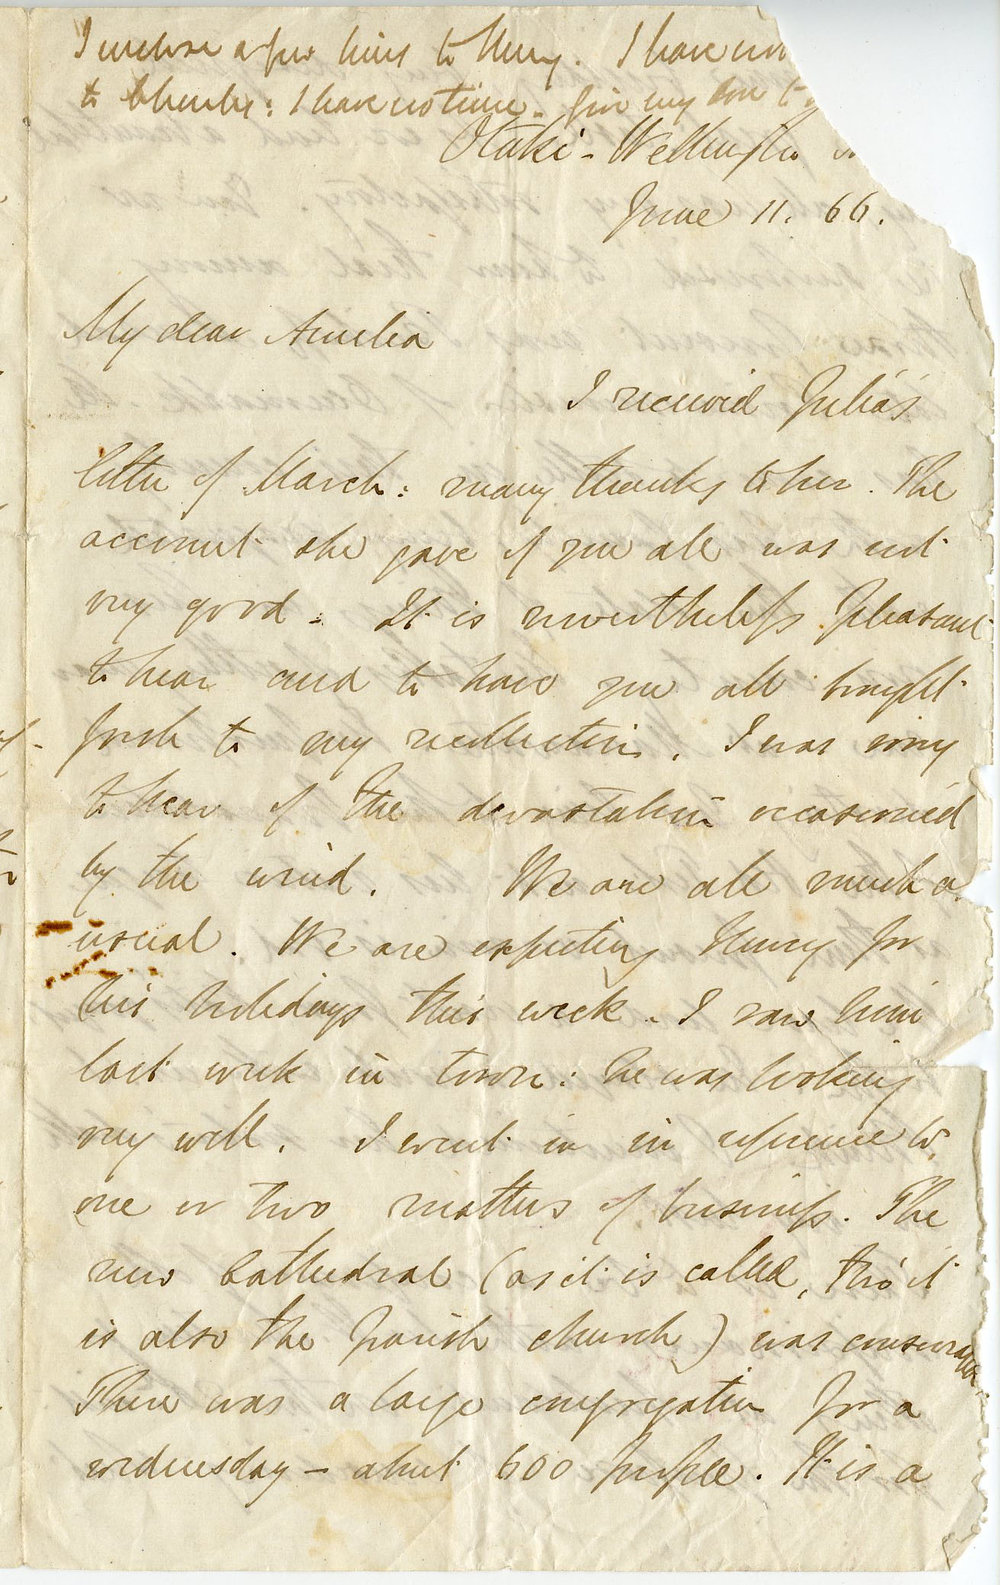 I enclose a few lines to Henry. I have
to Charles: I have no time. Give my love to
Otaki - Wellington
June 11. 66.
My dear Amelia
I received Julia's
letter of March: many thanks to her. The
account she gave of you all was not
very good. It is nevertheless pleasant
to hear and to have you all brought
fresh to my recollection. I was sorry
to hear of the devastation occasioned
by the wind. We are all much a
usual. We are expecting Henry for
his holidays this week. I saw him
last week in town: he was looking
very well. I went in in reference to
one or two matters of business. The
new Cathedral (as it is called, tho' it
is also the Parish church) was consecrated
There was a large congregation for a
wednesday - about 600 people. It is a